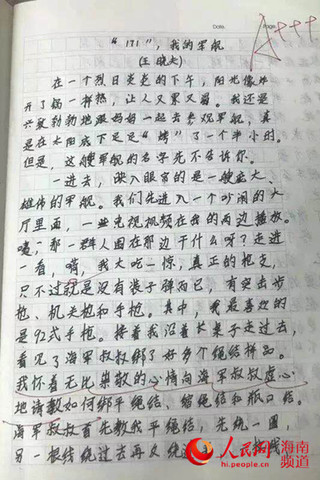 Date. Page.
A++++
"171"，我的军舰
(王晓夫)
在一个烈日炎炎的下午，阳光像炸
开了锅一样热，让人又累又渴。我还是
兴致勃勃地跟妈妈一起去参观军舰，真
是在太阳底下足足"烤"了一个半小时。
但是，这艘军舰的名字先不告诉你。
一进去，映入眼帘的是一艘庞大、
雄伟的军舰。我们先进入一个吵闹的大
厅里面，一些电视视频在我的两边播放。
咦，那一群人围在那边干什么呀？走进
一看，嗬，我大吃一惊，真正的枪支，
只不过就是没有装子弹而已，有突击步
枪、机关枪和手枪。其中，我最喜欢的
是92式手枪。接着我沿着长桌子走过去，
看见了海军叔叔绑了好多个绳结样品。
我怀着无比崇敬的心情向海军叔叔虚心
地请教如何绑平绳结、缩绳结和瓶口结。
海军叔叔首先教我平绳结，先绕一圈，
另一根线绕过去再又绕过
人民网 海南频道
hi.people.cn